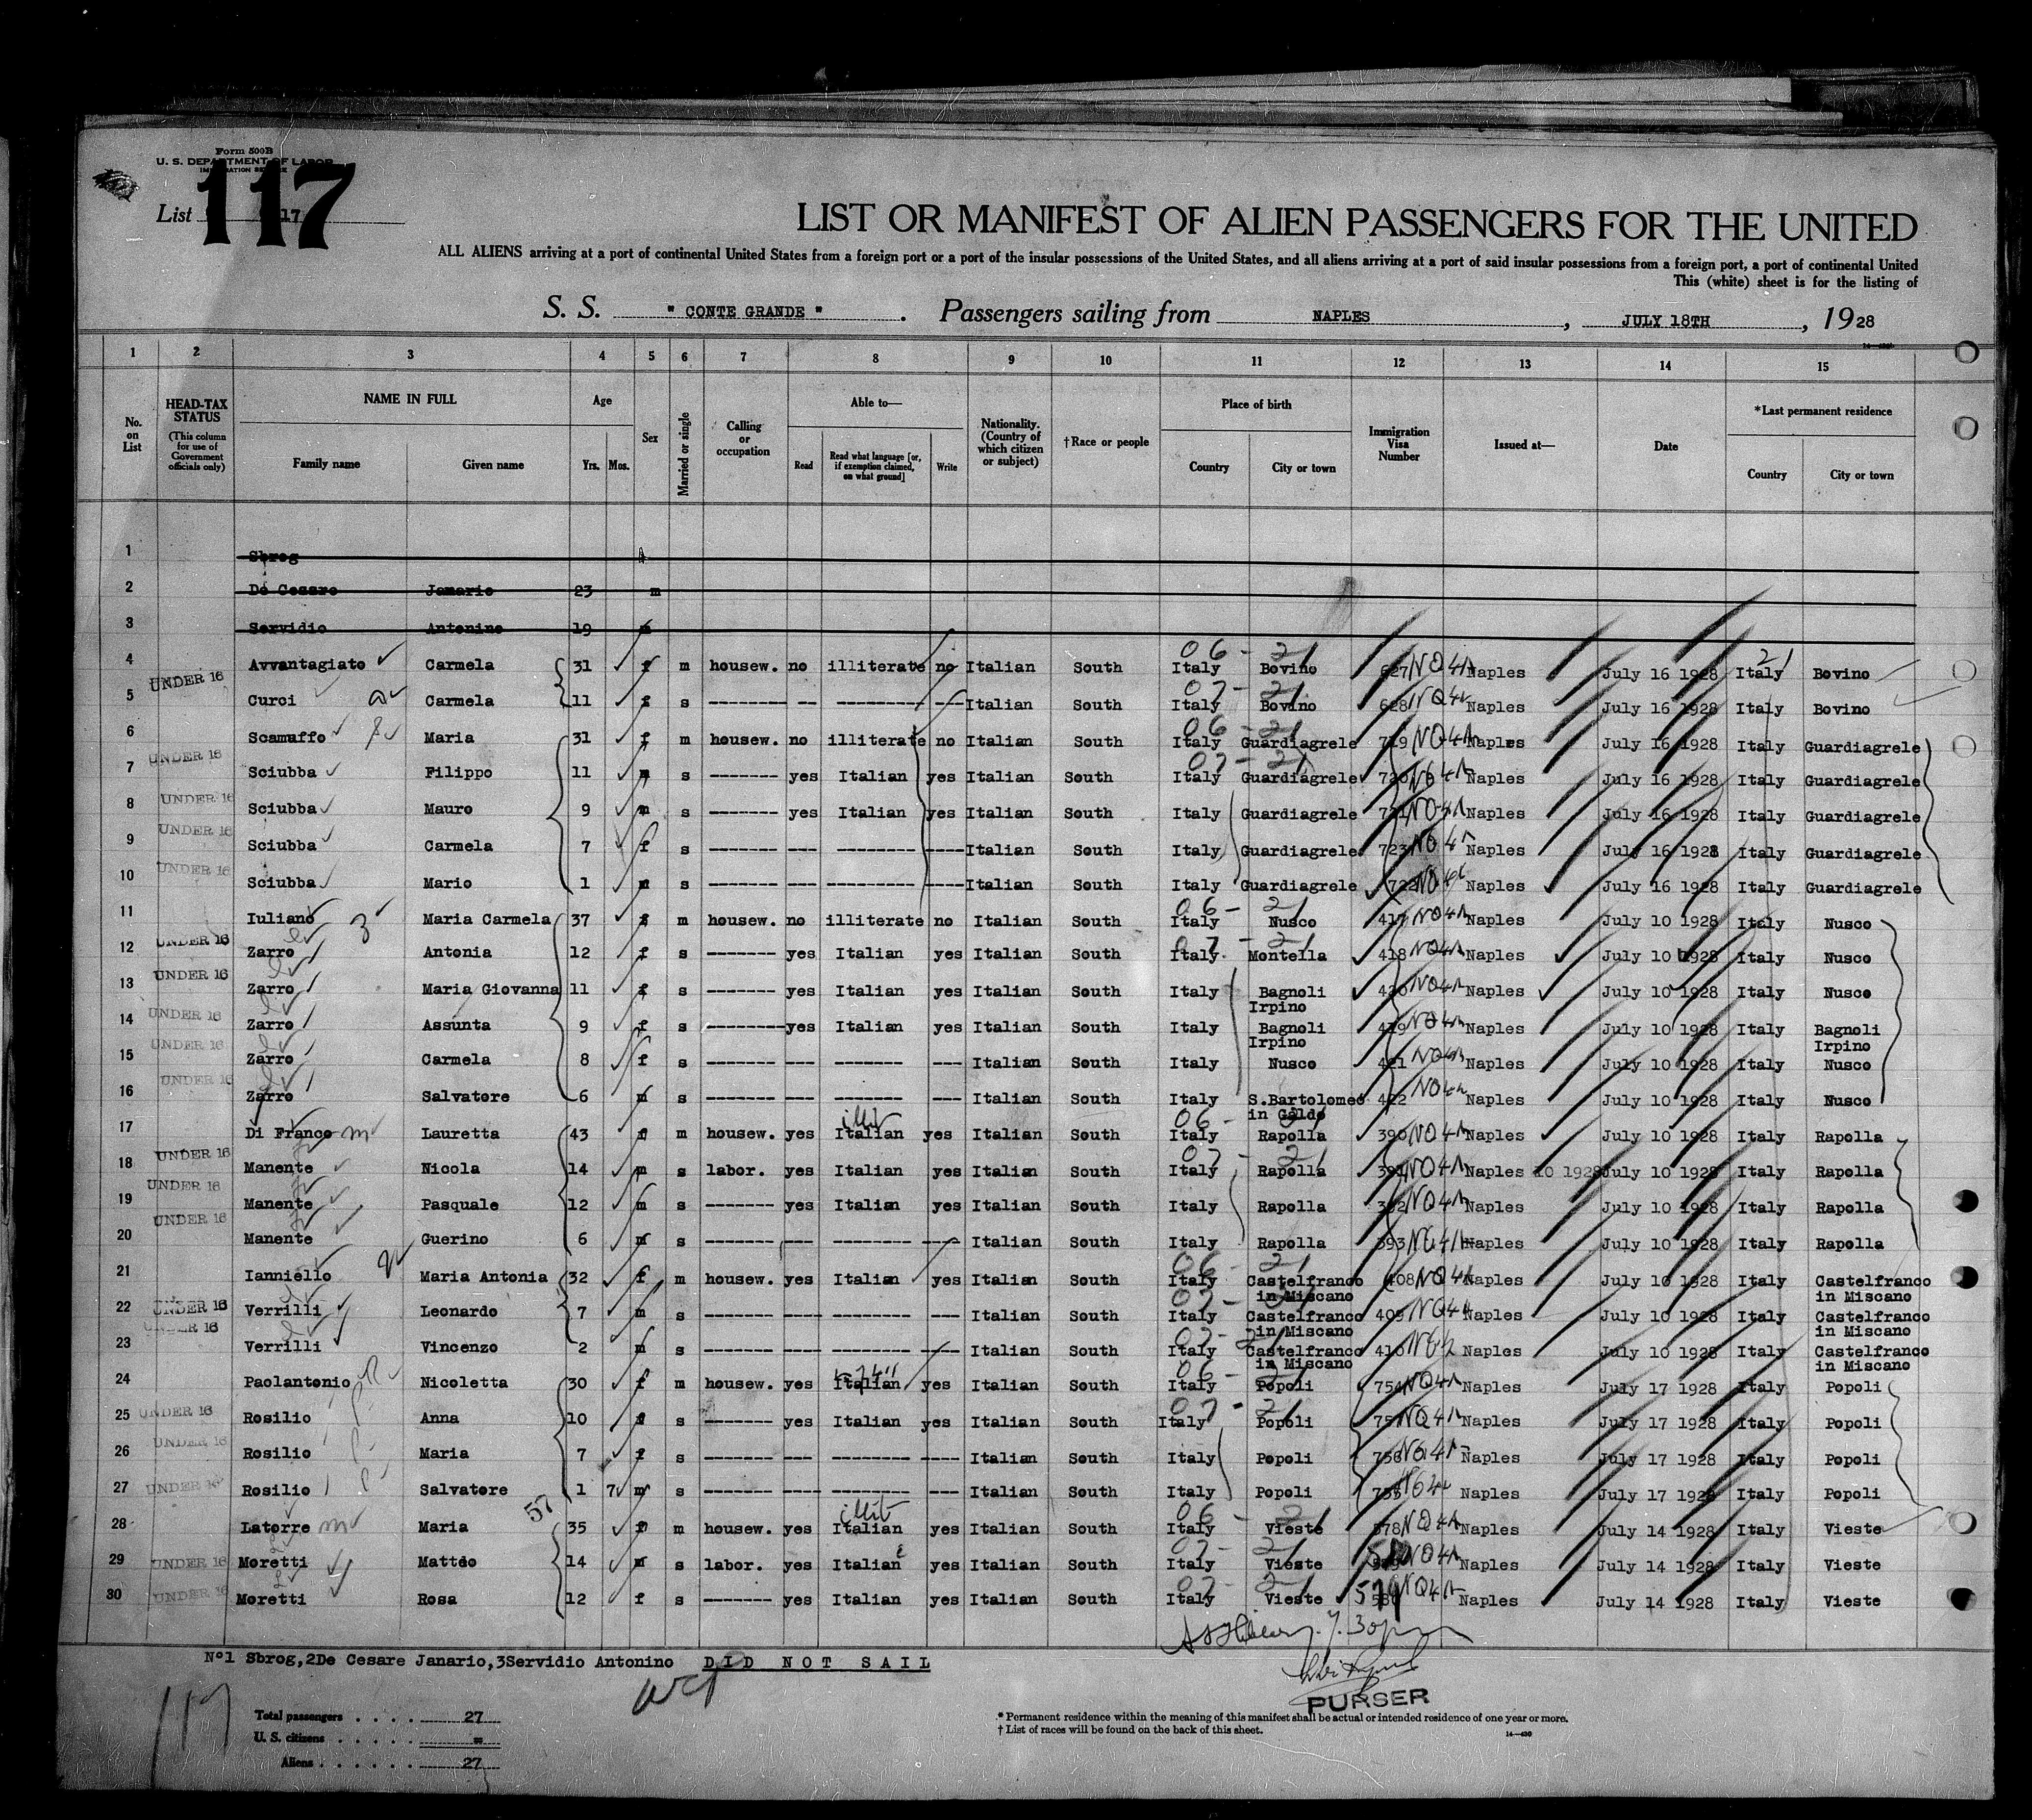 Form 500B
U. S. DEPARTMENT OF LABOR
IMMIGRATION SERVICE
117
List 17
LIST OR MANIFEST OF ALIEN PASSENGERS FOR THE UNITED
ALL ALIENS arriving at a port of continental United States from a foreign port or a port of the insular possessions of the United States, and all aliens arriving at a port of said insular possessions from a foreign port, a port of continental United
This (white) sheet is for the listing of
S. S. " CONTE GRANDE " . Passengers sailing from NAPLES , JULY 18TH , 1928
1 2 3 4 5 6 7 8 9 10 11 12 13 14 15
No. on List
HEAD-TAX STATUS (This column for use of Government officials only)
NAME IN FULL Family name Given name
Age Yrs. Mos.
Sex
Married or single
Calling or occupation
Able to— Read Read what language [or, if exemption claimed, on what ground] Write
Nationality. (Country of which citizen or subject)
†Race or people
Place of birth Country City or town
Immigration Visa Number
Issued at—
Date
*Last permanent residence Country City or town
1 Sbrog
2 De Cesare Janario 23 m
3 Servidio Antonino 19 m
4 Avvantagiato Carmela 31 f m housew. no illiterate no Italian South Italy Bovino 627 NQ4 Naples July 16 1928 Italy Bovino
UNDER 16
5 Curci Carmela 11 f s -------- -- --------- ---- Italian South Italy Bovino 628 NQ4 Naples July 16 1928 Italy Bovino
6 Scamuffo Maria 31 f m housew. no illiterate no Italian South Italy Guardiagrele 719 NQ4 Naples July 16 1928 Italy Guardiagrele
UNDER 16
7 Sciubba Filippo 11 m s ------- yes Italian yes Italian South Italy Guardiagrele 720 Naples July 16 1928 Italy Guardiagrele
UNDER 16
8 Sciubba Mauro 9 m s ------- yes Italian yes Italian South Italy Guardiagrele 721 Naples July 16 1928 Italy Guardiagrele
UNDER 16
9 Sciubba Carmela 7 f s ------- --- -------- ---- Italian South Italy Guardiagrele 723 Naples July 16 1928 Italy Guardiagrele
UNDER 16
10 Sciubba Mario 1 m s ------- --- --------- ---- Italian South Italy Guardiagrele 722 Naples July 16 1928 Italy Guardiagrele
11 Iuliano Maria Carmela 37 f m housew. no illiterate no Italian South Italy Nusco 417 NQ4 Naples July 10 1928 Italy Nusco
UNDER 16
12 Zarro Antonia 12 f s ------- yes Italian yes Italian South Italy Montella 418 NQ4 Naples July 10 1928 Italy Nusco
UNDER 16
13 Zarro Maria Giovanna 11 f s ------- yes Italian yes Italian South Italy Bagnoli Irpino 420 NQ4 Naples July 10 1928 Italy Nusco
UNDER 16
14 Zarro Assunta 9 f s -------- yes Italian yes Italian South Italy Bagnoli Irpino 419 NQ4 Naples July 10 1928 Italy Bagnoli Irpino
UNDER 16
15 Zarro Carmela 8 f s ------- --- ------- --- Italian South Italy Nusco 421 NQ4 Naples July 10 1928 Italy Nusco
UNDER 16
16 Zarro Salvatore 6 m s ------- --- -------- --- Italian South Italy S.Bartolomeo in Galdo 422 NQ4 Naples July 10 1928 Italy Nusco
illit
17 Di Franco Lauretta 43 f m housew. yes Italian yes Italian South Italy Rapolla 390 NQ4 Naples July 10 1928 Italy Rapolla
UNDER 16
18 Manente Nicola 14 m s labor. yes Italian yes Italian South Italy Rapolla 391 NQ4 Naples 10 1928 July 10 1928 Italy Rapolla
UNDER 16
19 Manente Pasquale 12 m s ------- yes Italian yes Italian South Italy Rapolla 392 NQ4 Naples July 10 1928 Italy Rapolla
UNDER 16
20 Manente Guerino 6 m s ------- --- -------- ---- Italian South Italy Rapolla 393 NQ4 Naples July 10 1928 Italy Rapolla
21 Ianniello Maria Antonia 32 f m housew. yes Italian yes Italian South Italy Castelfranco in Miscano 408 NQ4 Naples July 10 1928 Italy Castelfranco in Miscano
UNDER 16
22 Verrilli Leonardo 7 m s ------- ---- -------- --- Italian South Italy Castelfranco in Miscano 409 NQ4 Naples July 10 1928 Italy Castelfranco in Miscano
UNDER 16
23 Verrilli Vincenzo 2 m s ------- ---- -------- --- Italian South Italy Castelfranco in Miscano 410 Naples July 10 1928 Italy Castelfranco in Miscano
24 Paolantonio Nicoletta 30 f m housew. yes Italian yes Italian South Italy Popoli 754 NQ4 Naples July 17 1928 Italy Popoli
UNDER 16
25 Rosilio Anna 10 f s ------- yes Italian yes Italian South Italy Popoli 757 NQ4 Naples July 17 1928 Italy Popoli
UNDER 16
26 Rosilio Maria 7 f s ------- --- -------- ---- Italian South Italy Popoli 756 Naples July 17 1928 Italy Popoli
UNDER 16
27 Rosilio Salvatore 1 7 m s ------- --- -------- --- Italian South Italy Popoli 755 Naples July 17 1928 Italy Popoli
57
illit
28 Latorre Maria 35 f m housew. yes Italian yes Italian South Italy Vieste 578 NQ4 Naples July 14 1928 Italy Vieste
UNDER 16
29 Moretti Matteo 14 m s labor. yes Italian yes Italian South Italy Vieste NQ4 Naples July 14 1928 Italy Vieste
UNDER 16
30 Moretti Rosa 12 f s ------- yes Italian yes Italian South Italy Vieste 579 NQ4 Naples July 14 1928 Italy Vieste
7.30pm
N°1 Sbrog,2De Cesare Janario,3Servidio Antonino DID NOT SAIL
PURSER
117
Total passengers . . . . 27
U. S. citizens . . . . . =
Aliens . . . . . . 27
* Permanent residence within the meaning of this manifest shall be actual or intended residence of one year or more.
† List of races will be found on the back of this sheet.
14—430